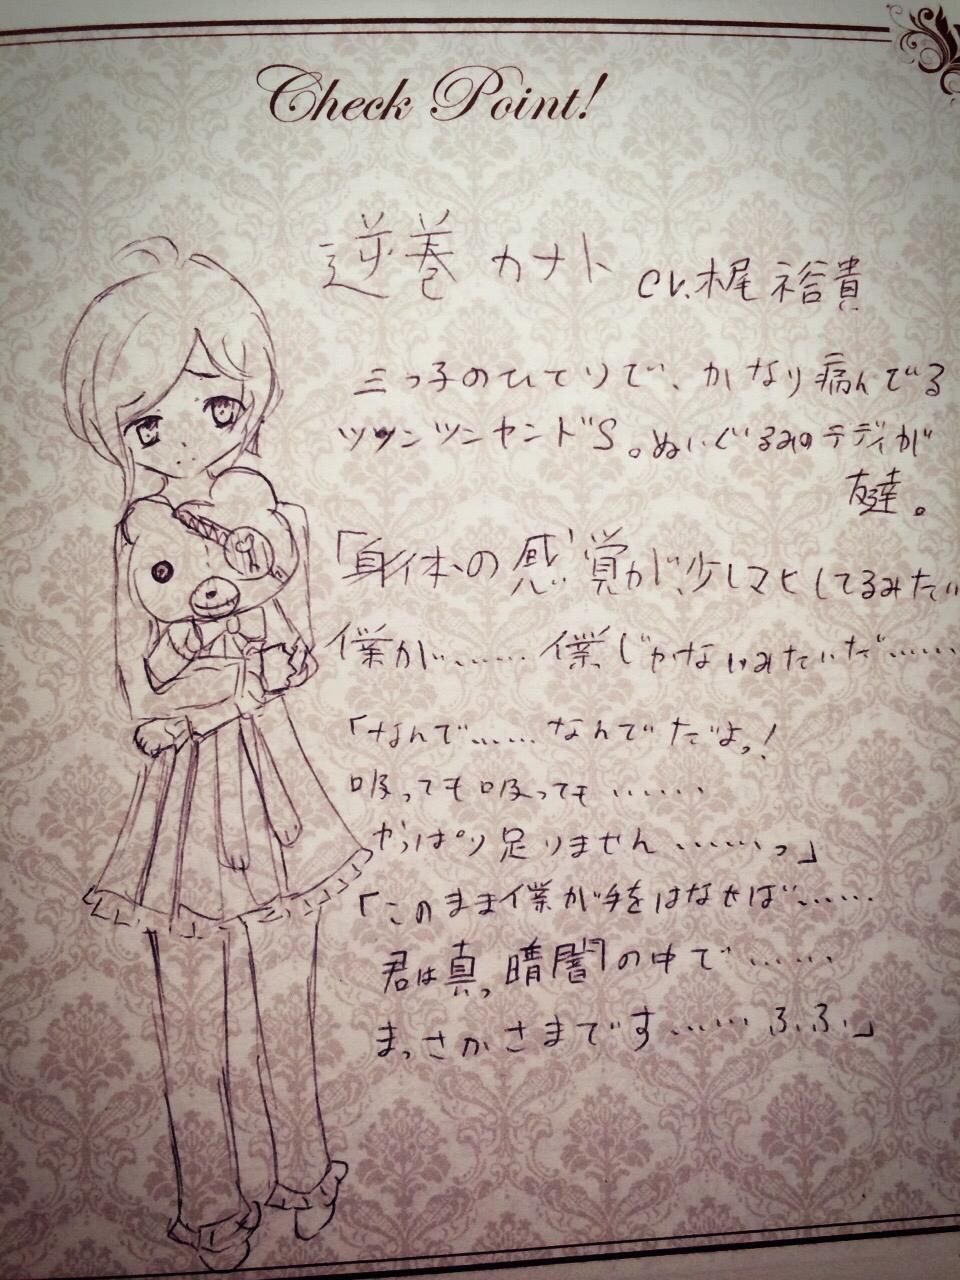 Check Point!
逆巻 カナト cv.梶 裕貴
三つ子のひとりで、かなり病んでる
ツンツンツンヤンドS。ぬいぐるみのテディが
友達。
「身体の感覚が、少しマヒしてるみたい
僕が……… 僕じゃないみたいだ……
「なんで…… なんでだよっ!
吸っても吸っても ……
やっぱり足りません ……っ」
「このまま僕が手をはなせば……
君は真っ暗闇の中で ……
まっさかさまです …… ふふ」